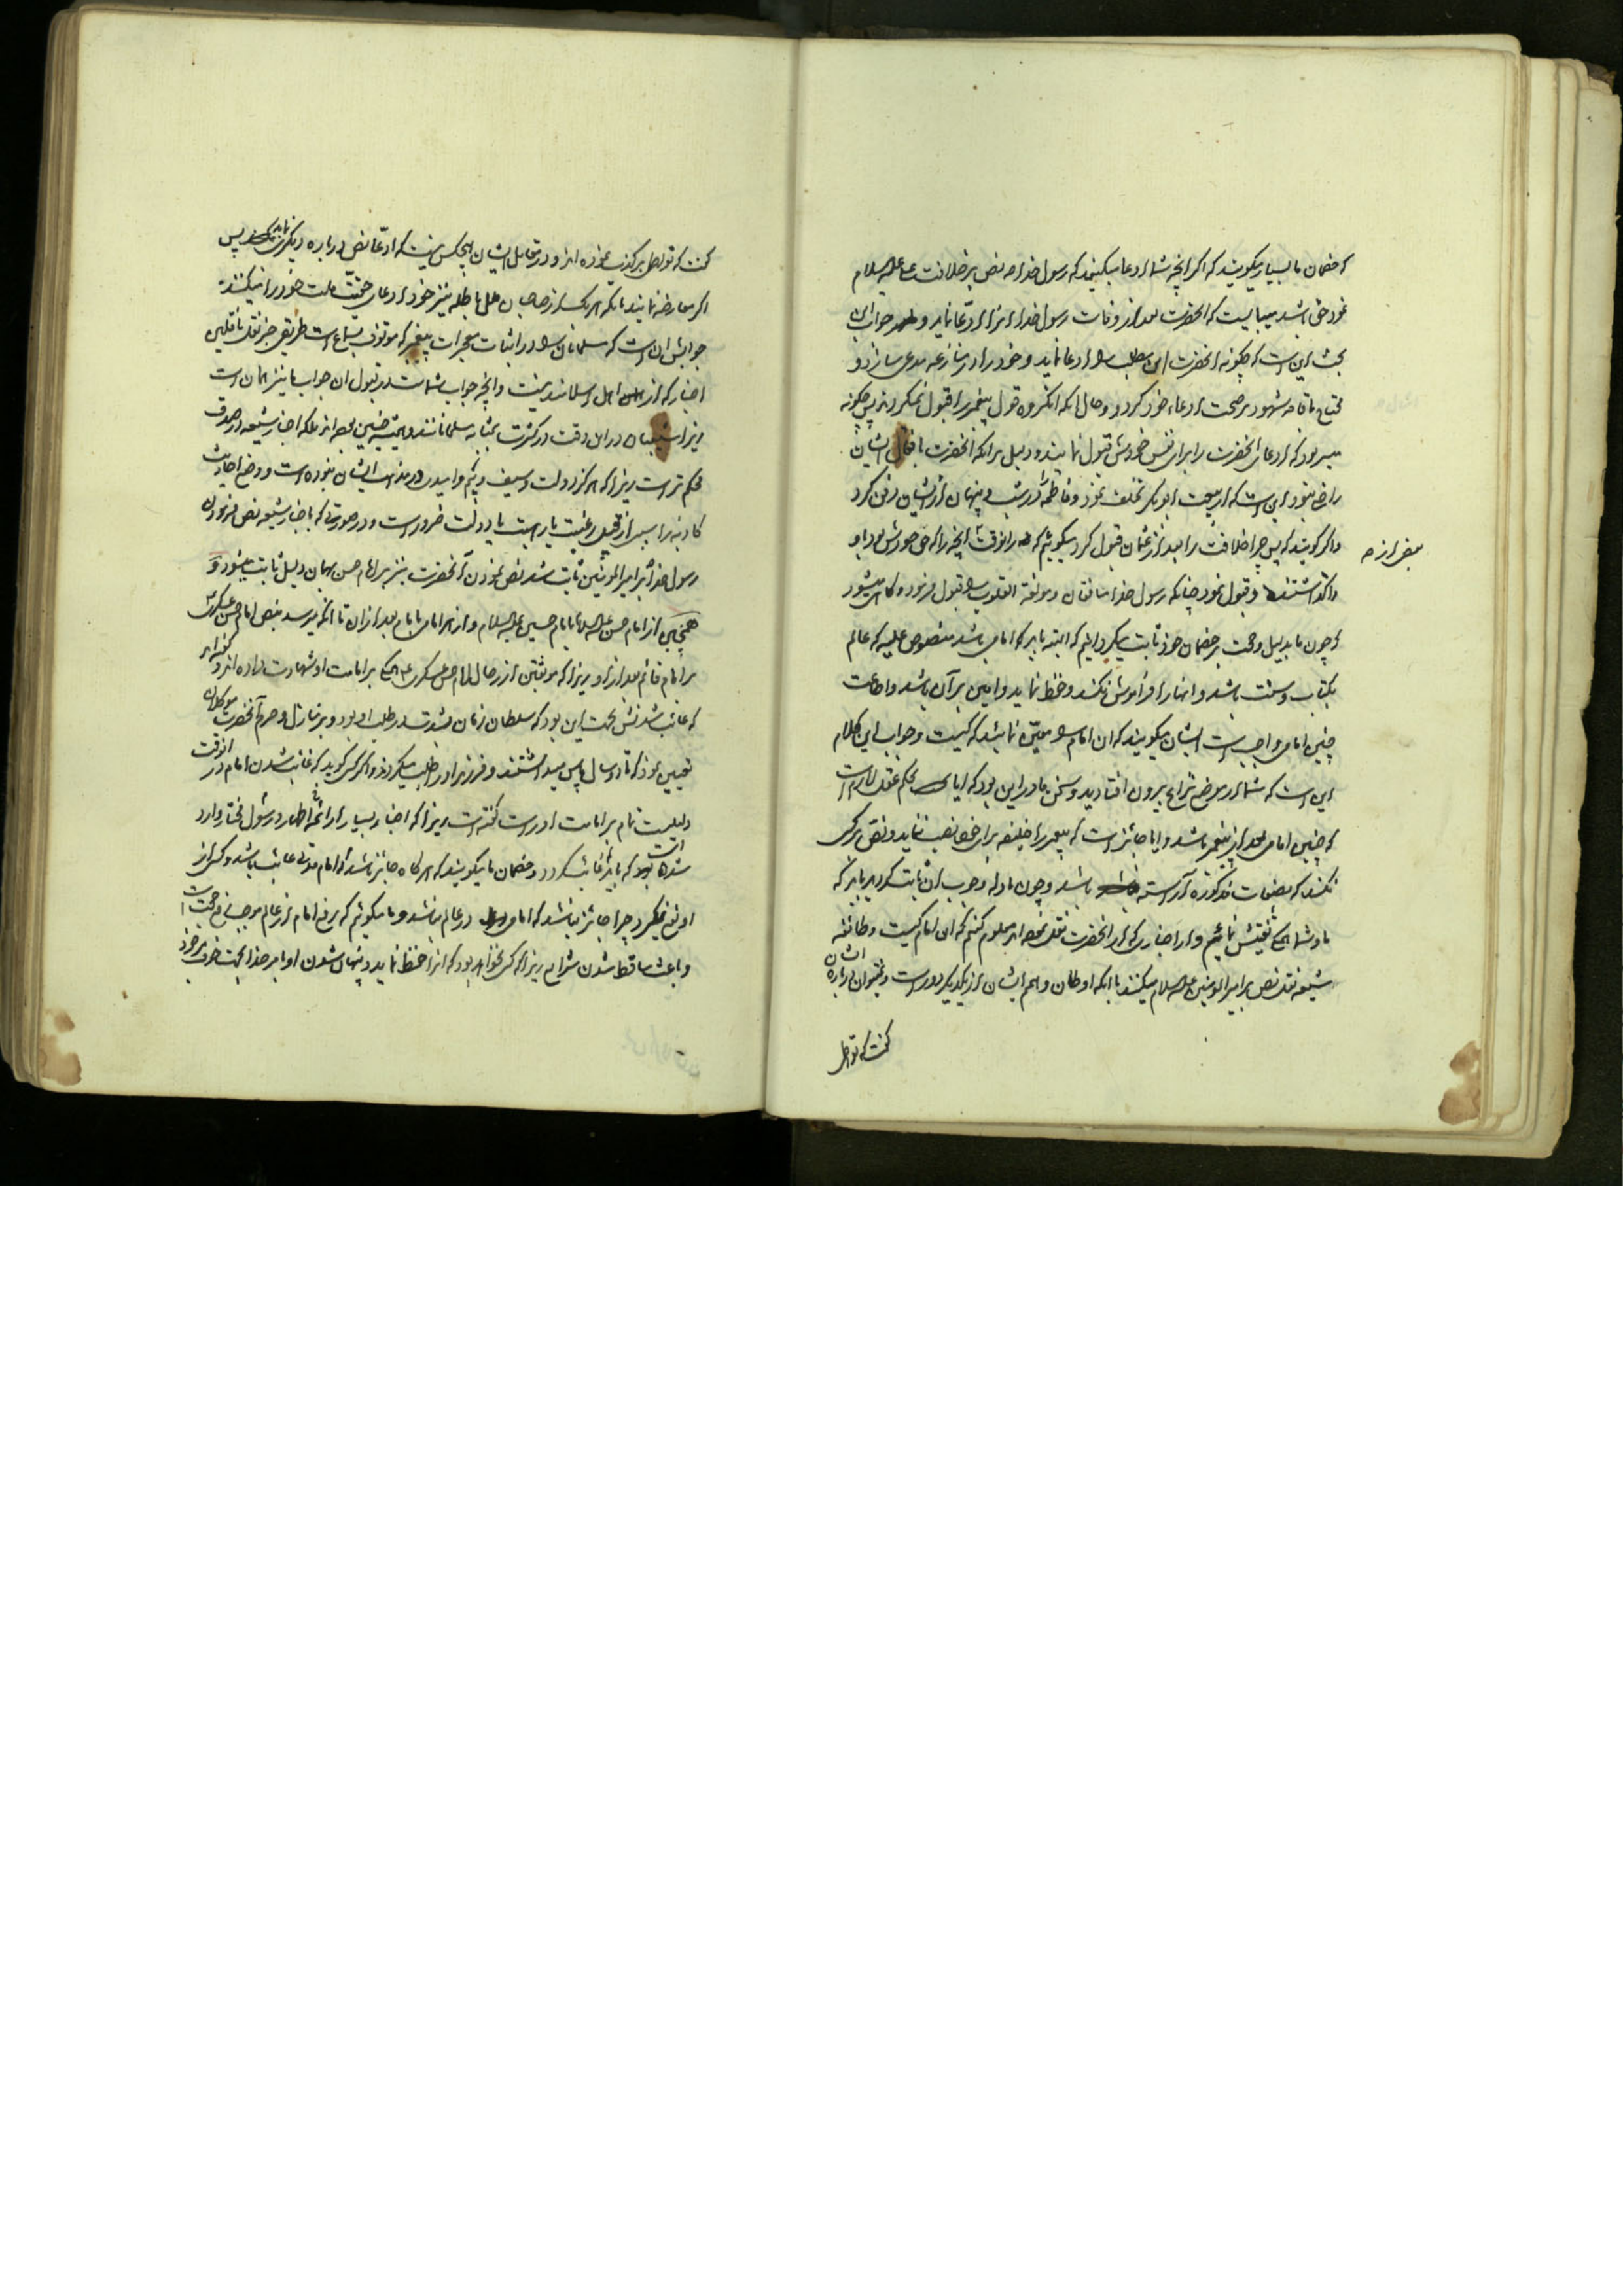 که خصمان ما بسیار میگویند که اگر آنچه شما ادعا میکنید که رسول خدا ص نص بر خلافت علی علیه السلام
نمود حق باشد میبایست که آنحضرت بعد از وفات رسول خدا از برای ادعا نماید و جواب این
بحث این است که چگونه آنحضرت این مطلب را ادعا نماید و خود را در منازعه مدعی سازد و
محتاج باقامه شهود بر صحت ادعاء خود گردد و حال آنکه آنگروه قول پیغمبر را قبول نمیکردند پس چگونه
میسر بود که ادعای آنحضرت را برای نفس خودش قبول نمایند و دلیل بر آنکه آنحضرت بافعال ایشان
راضی نبود این است که از بیعت ابوبکر تخلف نمود و فاطمه را در شب و پنهان از ایشان دفن کرد
و اگر گویند که پس چرا خلافت را بعد از عثمان قبول کرد میگوئیم که در آنوقت آنچه را که حق خودش بود باو
بعض از حق
واگذاشتند و قبول نمود چنانکه رسول خدا منافقان و مؤلفة القلوب را قبول فرمود و گاهی میشود
که چون ما بدلیل و حجت بر خصمان خود ثابت میگردانیم که البته باید که امامی باشد منصوص علیه که عالم
بکتاب و سنت باشد و آنها را فراموش نکند و حفظ نماید و امین بر آن باشد و اطاعت
چنین امامی واجب است ایشان میگویند که آن امام را معین نمائید که کیست و جواب این کلام
این است که شما از موضع نزاع بیرون افتادید و سخن ما در این بود که آیا بحکم عقل لازم است
که چنین امامی بعد از پیغمبر باشد و آیا جائز است که پیغمبر را خلیفه برای خود نصب ننماید و نص بر کسی
نکند که بصفات مذکوره آراسته باشد و چون ما دله وجوب آن ثابت گردید باید که
ما و شما تفتیش نمائیم و از اخباری که از آنحضرت نقل نموده‌اند معلوم کنیم که این امام کیست و طائفه
شیعه نقل نص بر امیر المؤمنین علیه السلام میکنند با آنکه اوطان و هم ایشان از یکدیگر دور است و نمیتوان درباره ایشان
گفت که تواطی
گفت که تواطی بر کذب نموده‌اند و در مقابل ایشان هیچکس نیست که ادعا نص درباره دیگری نماید پس
اگر معارضه نمایند بآنکه هر یک از صاحبان ملل باطله نیز خود ادعای حقیت ملت خود را میکنند
جوابش آن است که مسلمانان را در اثبات معجزات پیغمبر که موقوف بسماع است طریقی جز نقل ناقلین
اخبار که از اهل اسلامند نیست و آنچه جواب شماست در قبول آن جواب ما نیز همان است
زیرا شیعیان در این وقت در کثرت بمثابه مسلمانانند و همیشه چنین بوده‌اند بلکه اخبار شیعه در صدق
محکم تر است زیرا که هرگز دولت و سیف و بیم و امید در مذهب ایشان نبوده است و وضع احادیث
کاذبه را سببی از قبیل رغبت یا رهبت یا دولت ضرور است و در صورتی که باخبار شیعه نص فرمودن
رسول خدا بر امیر المؤمنین ثابت شد نص نمودن آنحضرت نیز بر امام حسن بهمان دلیل ثابت میشود و
همچنین از امام حسن علیه السلام تا بامام حسین علیه السلام و از هر امامی بامام بعد از آن تا آنکه میرسد بنص امام حسن عسکری
بر امام قائم بعد از او زیرا که موثقین از رجال امام حسن عسکری بر امامت او شهادت داده‌اند و گفته‌اند
که غائب شدنش بجهت این بود که سلطان زمان بشدت در طلب او بود و بر منازل و حرم آنحضرت موکلان
تعیین نمود که تا دو سال پاس میداشتند و فرزند او را طلب میکردند و اگر کسی گوید که غائب شدن امام در آنوقت
دلیلیست تمام بر امامت او راست گفته است زیرا که اخبار بسیار از ائمه اطهار و رسول مختار وارد
شده است که باید غائب گردد و خصمان ما میگویند که هر گاه جائز باشد که امام مدتی غائب باشد و کسی از
او نفع نگیرد چرا جائز نباشد که امامی در عالم نباشد و ما میگوئیم که رفع امام از عالم موجب رفع حجت است
و باعث ساقط شدن شرایع زیرا که کسی نخواهد بود که آنرا حفظ نماید و پنهان شدن او بامر خدا بجهت خوف بر خود